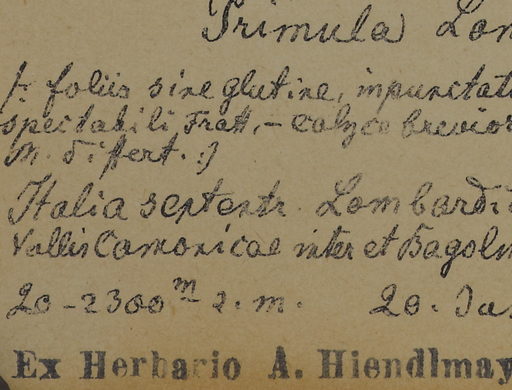 Primula Lon
/: foliis sine glutine, impunctati
spectabili Fratt, – calyce brevior
M. differt. :/
Italia septentr. Lombardi
Vallis Camonicae inter et Bagolm
20-2300 m s. m. 20. Ja
Ex Herbario A. Hiendlmay